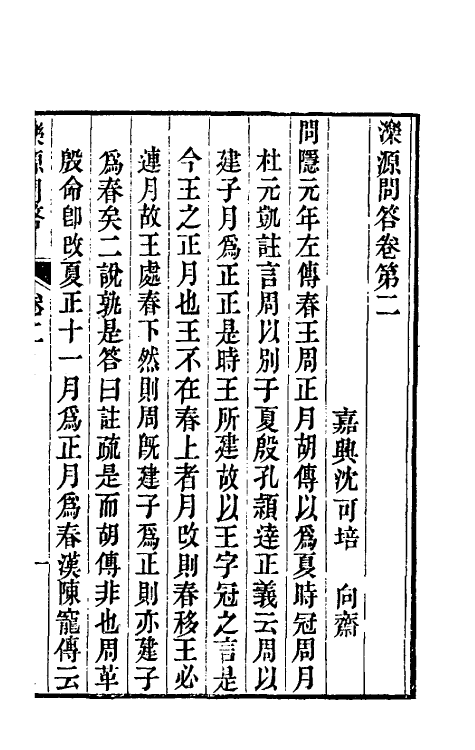 濼源問答卷第二
嘉興沈可培　向齋
問隱元年左傳春王周正月胡傳以爲夏時冠周月
杜元凱註言周以別于夏殷孔穎達正義云周以
建子月爲正正是時王所建故以王字冠之言是
今王之正月也王不在春上者月改則春移王必
連月故王處春下然則周旣建子爲正則亦建子
爲春矣二說孰是答曰註疏是而胡傳非也周革
殷命卽改夏正十一月爲正月爲春漢陳寵傳云
濼源問答
卷二
一